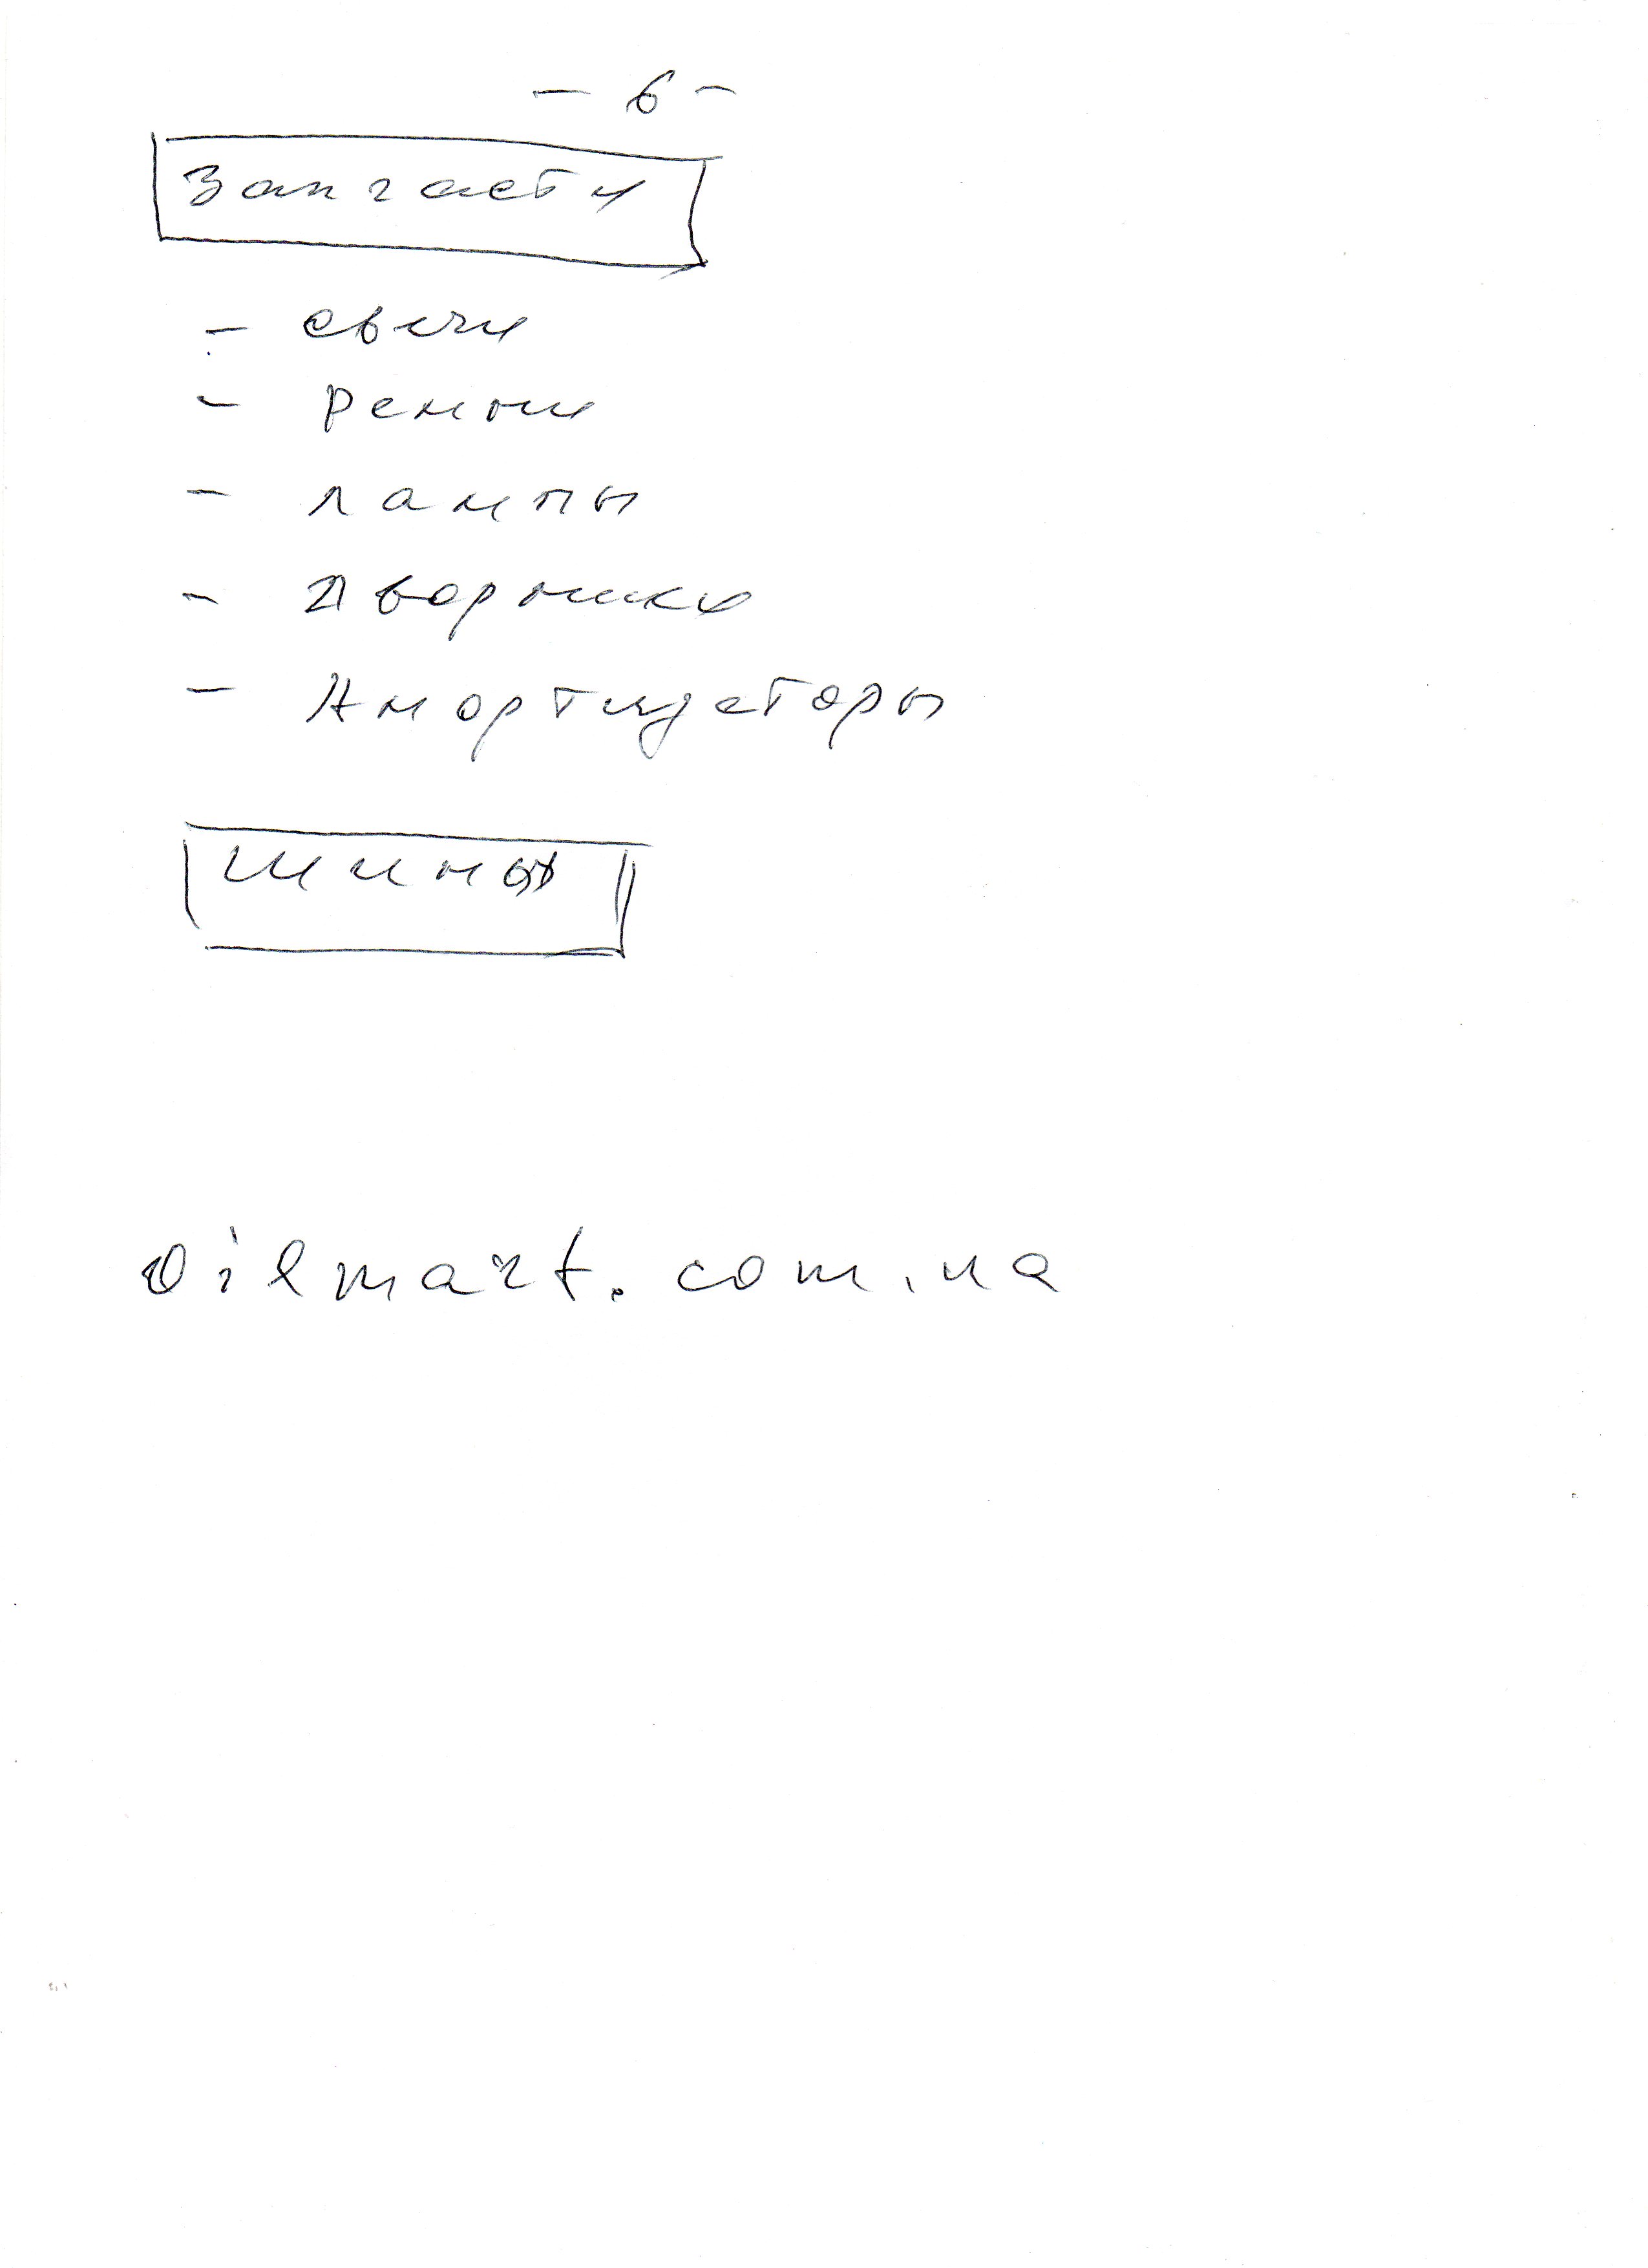 - 6 -
Запчасти
- свечи
- Ремни
- лампы
- Дворники
- Амортизаторы
шины
oilmart.com.ua